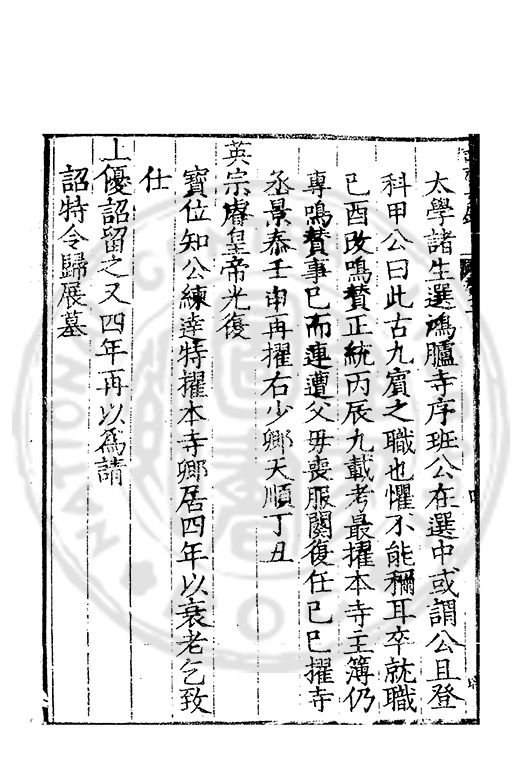 太學諸生選鴻臚寺序班公在選中或謂公且登
科甲公曰此古九賓之職也懼不能稱耳卒就職
己酉改鳴賛正統丙辰九載考最擢本寺主簿仍
專鳴賛事已而連遭父毋喪服闋復任己巳擢寺
丞景泰壬申再擢右少卿天順丁丑
英宗睿皇帝光復
寳位知公練達特擢本寺卿居四年以衰老乞致
仕
上優詔留之又四年再以爲請
詔特令歸展墓